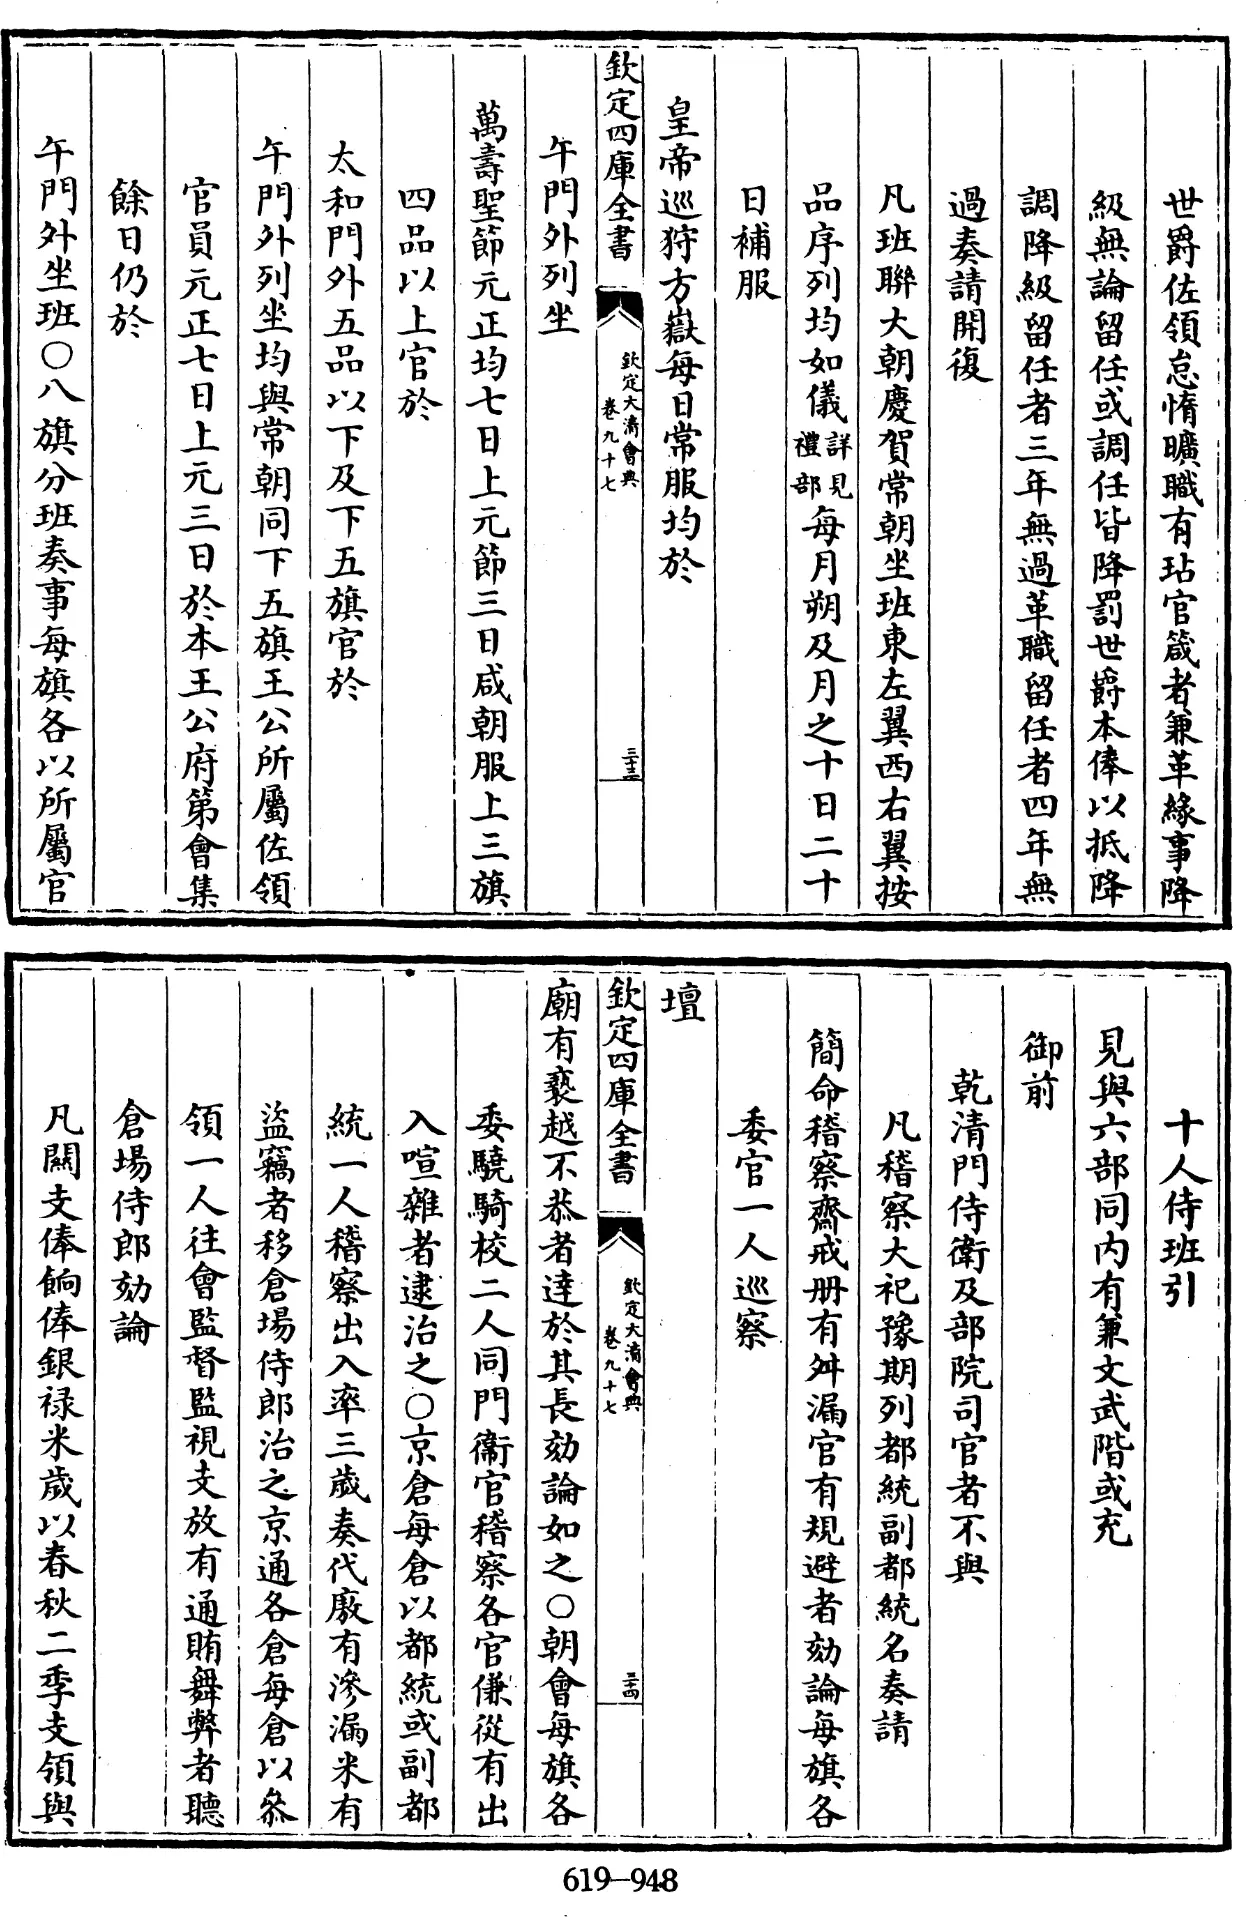 世爵佐領怠惰曠職有玷官箴者兼革緣事降
級無論留任或調任皆降罰世爵本俸以抵降
調降級留任者三年無過革職留任者四年無
過奏請開復
凡班聯大朝慶賀常朝坐班東左翼西右翼按
品序列均如儀詳見禮部每月朔及月之十日二十
日補服
皇帝巡狩方嶽每日常服均於
欽定四庫全書
欽定大清會典
卷九十七
三十三
午門外列坐
萬壽聖節元正均七日上元節三日咸朝服上三旗
四品以上官於
太和門外五品以下及下五旗官於
午門外列坐均與常朝同下五旗王公所屬佐領
官員元正七日上元三日於本王公府第會集
餘日仍於
午門外坐班○八旗分班奏事每旗各以所屬官
十人侍班引
見與六部同內有兼文武階或充
御前
乾清門侍衛及部院司官者不與
凡稽察大祀豫期列都統副都統名奏請
簡命稽察齋戒册有舛漏官有規避者劾論每旗各
委官一人巡察
壇
欽定四庫全書
欽定大清會典
卷九十七
三十四
廟有褻越不恭者達於其長劾論如之○朝會每旗各
委驍騎校二人同門衛官稽察各官傔從有出
入喧雜者逮治之○京倉每倉以都統或副都
統一人稽察出入率三歲奏代厫有滲漏米有
盜竊者移倉場侍郎治之京通各倉每倉以叅
領一人往會監督監視支放有通賄舞弊者聽
倉場侍郎劾論
凡關支俸餉俸銀祿米歲以春秋二季支領與
619-948